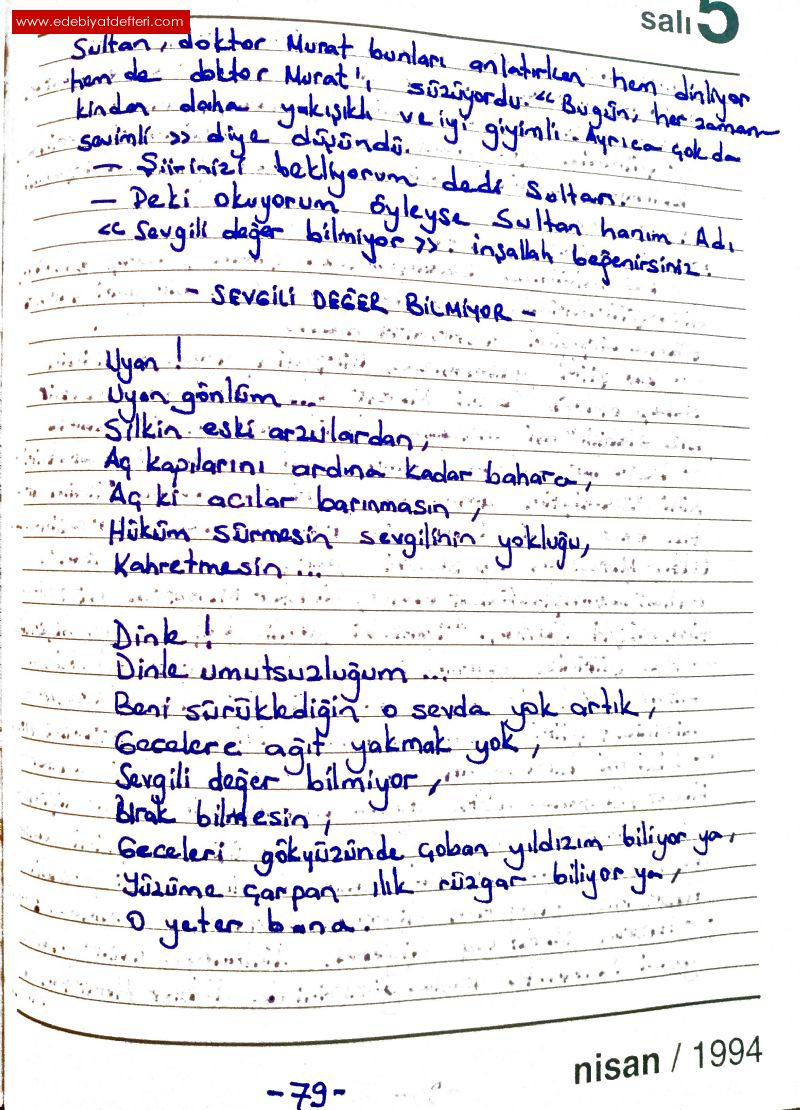 www.edebiyatdefteri.com
salı 5
Sultan, doktor Murat bunları anlatırken hem dinliyor
hem de doktor Murat'ı süzüyordu. << Bugün, her zaman
kinden daha yakışıklı ve iyi giyimli. Ayrıca çok da
sevimli >> diye düşündü.
- Şiirinizi bekliyorum dedi Sultan.
- Peki okuyorum öyleyse Sultan hanım. Adı
<< Sevgili değer bilmiyor >>. inşallah beğenirsiniz.
- SEVGİLİ DEĞER BİLMİYOR -
Uyan !
Uyan gönlüm...
Silkin eski arzulardan,
Aç kapılarını ardına kadar bahara,
Aç ki acılar barınmasın,
Hüküm sürmesin sevgilinin yokluğu,
Kahretmesin...
Dinle !
Dinle umutsuzluğum...
Beni sürüklediğin o sevda yok artık,
Gecelere ağıt yakmak yok,
Sevgili değer bilmiyor,
Bırak bilmesin;
Geceleri gökyüzünde çoban yıldızım biliyor ya,
Yüzüme çarpan ılık rüzgar biliyor ya,
O yeter bana.
nisan / 1994
-79-